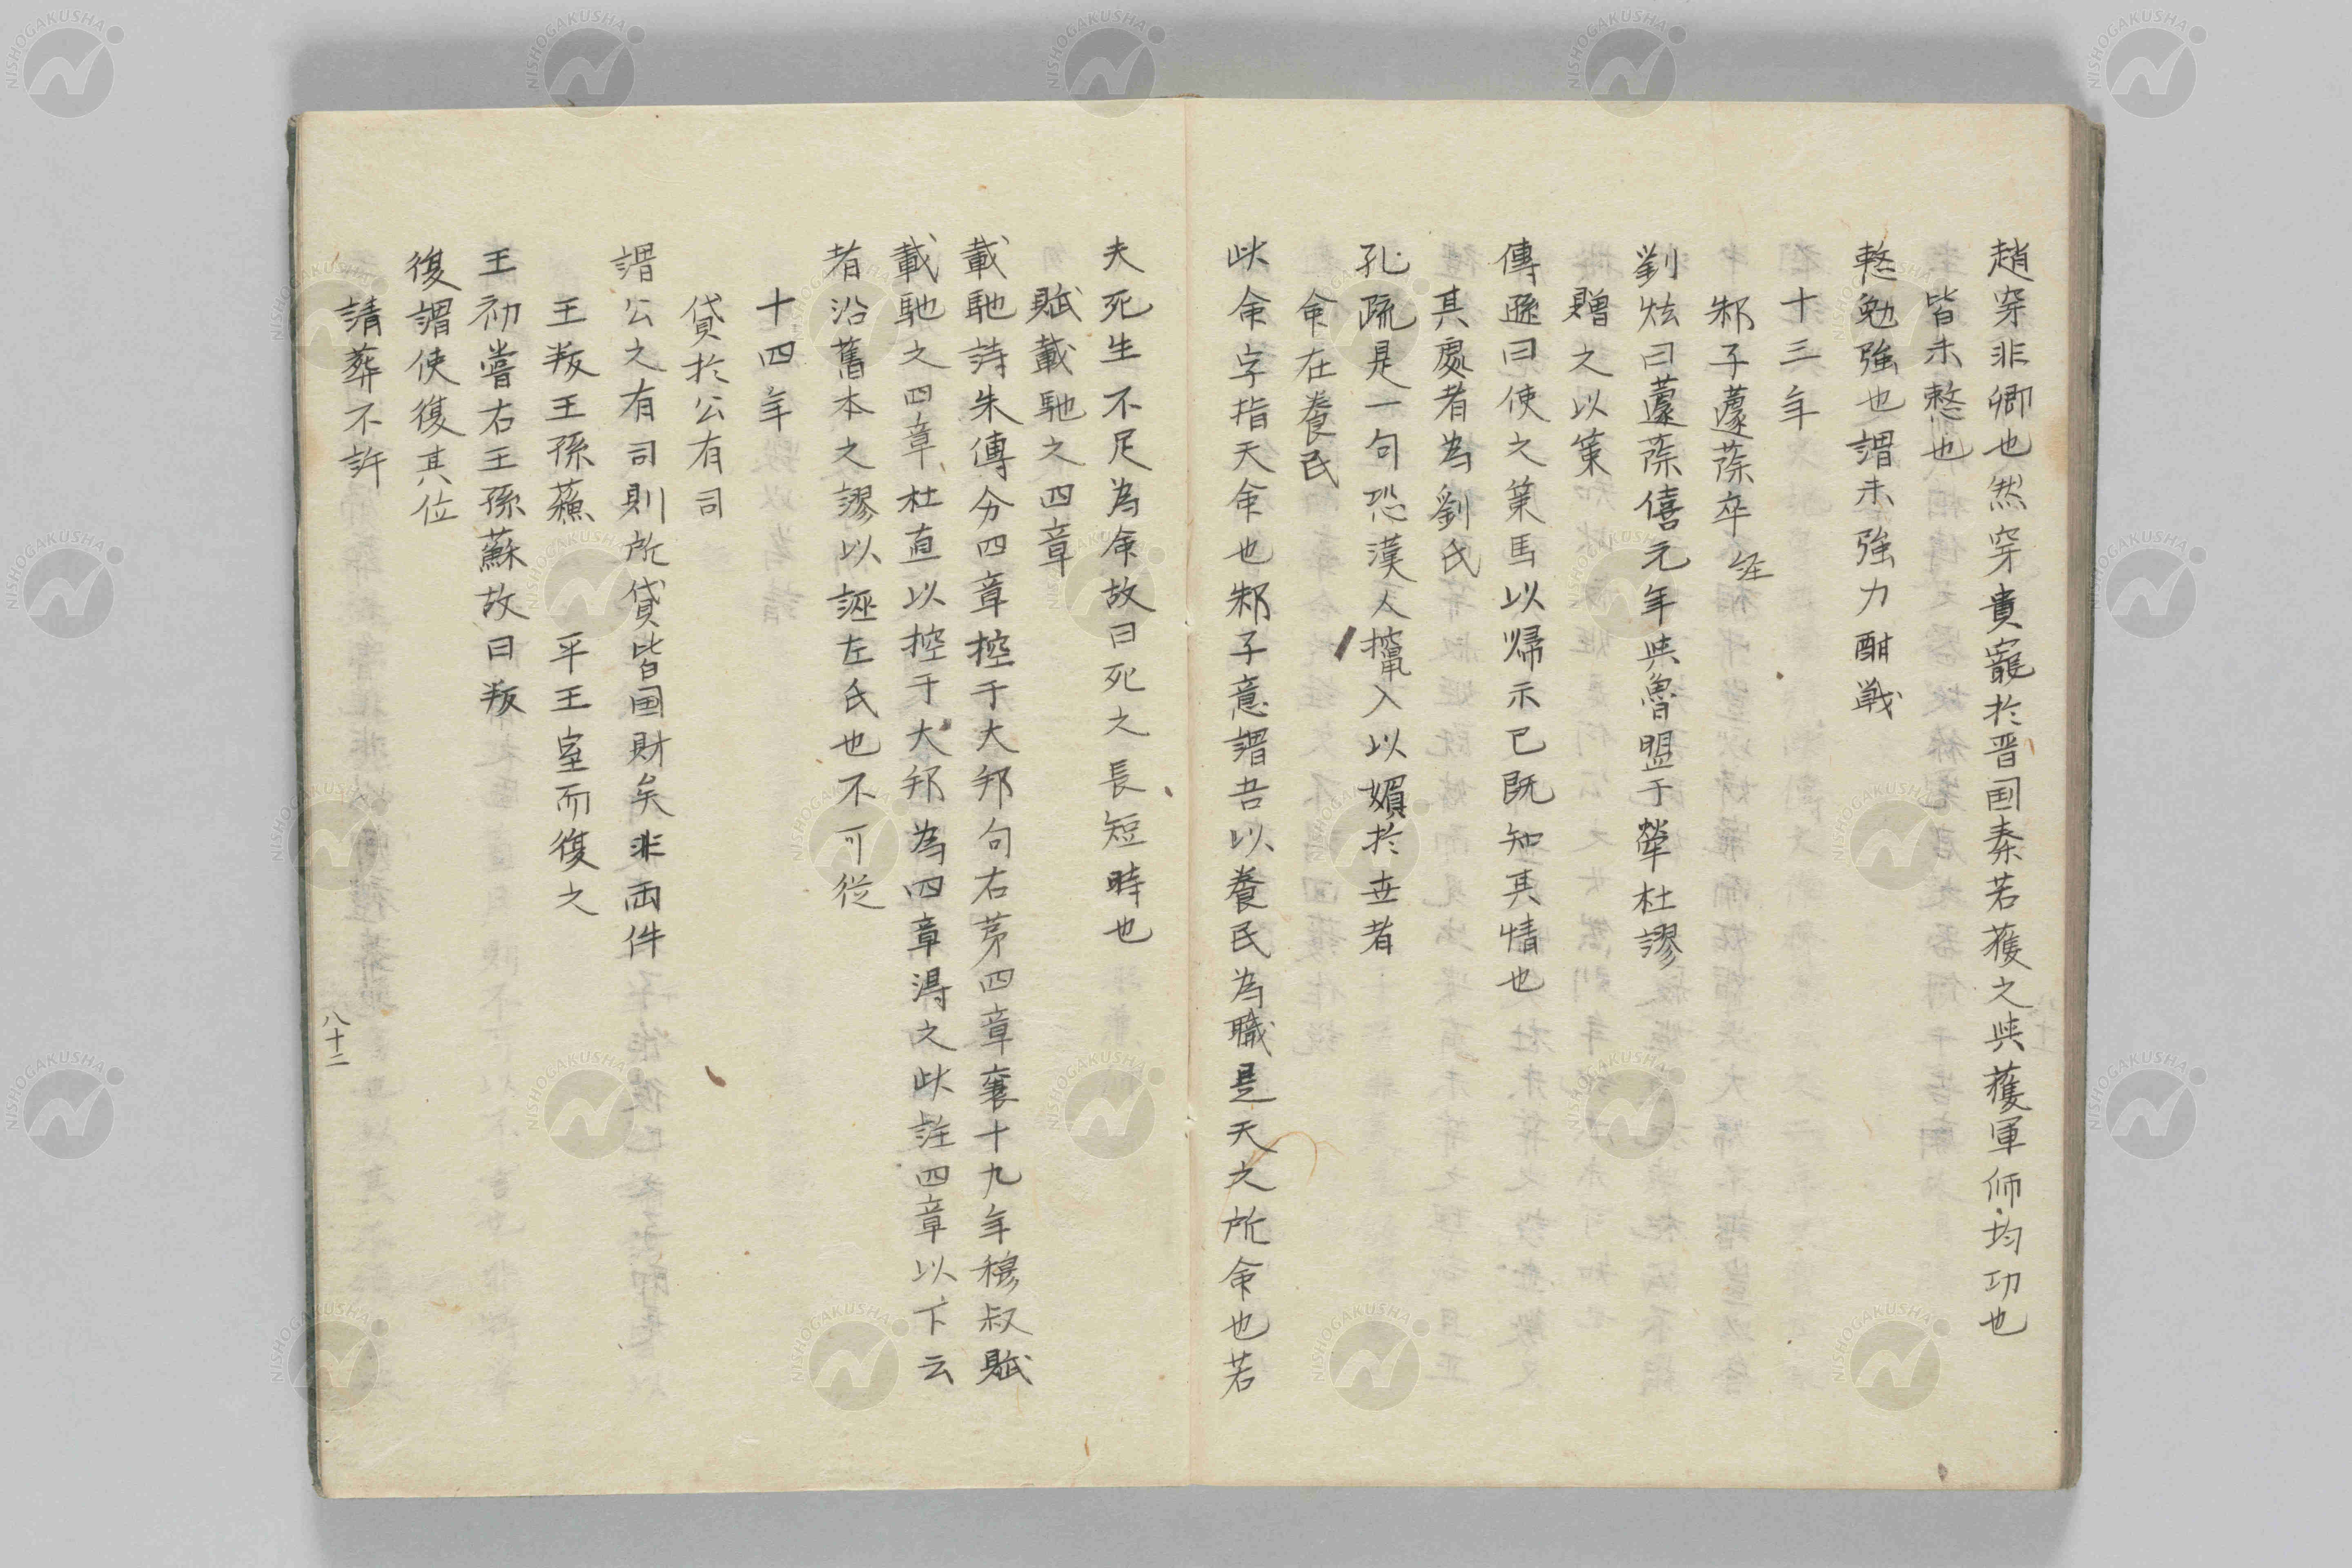 趙穿非卿也然穿貴寵於晋国秦若獲之與獲軍師均功也
皆未憖也
憖勉強也謂未強力酣戦
十三年
邾子蘧蒢卒 経
劉炫曰蘧蒢僖元年與魯盟于犖杜謬
贈之以策
傳遜曰使之策馬以帰示已既知其情也
其處者為劉氏
孔疏是一句恐漢人攛入以媚於世者
命在養民
此命字指天命也邾子意謂吾以養民為職是天之所命也若
夫死生不足為命故曰死之長短時也
賦載馳之四章
載馳詩朱傳分四章控于大邦句右茅四章襄十九年穆叔賦
載馳之四章杜直以控于大邦為四章得之此註四章以下云
者沿舊本之謬以誣左氏也不可従
十四年
貸於公有司
謂公之有司則所貸皆国財矣非両件
王叛王孫蘓 平王室而復之
王初嘗右王孫蘇故曰叛
復謂使復其位
請葬不許
八十二
NISHOGAKUSHA